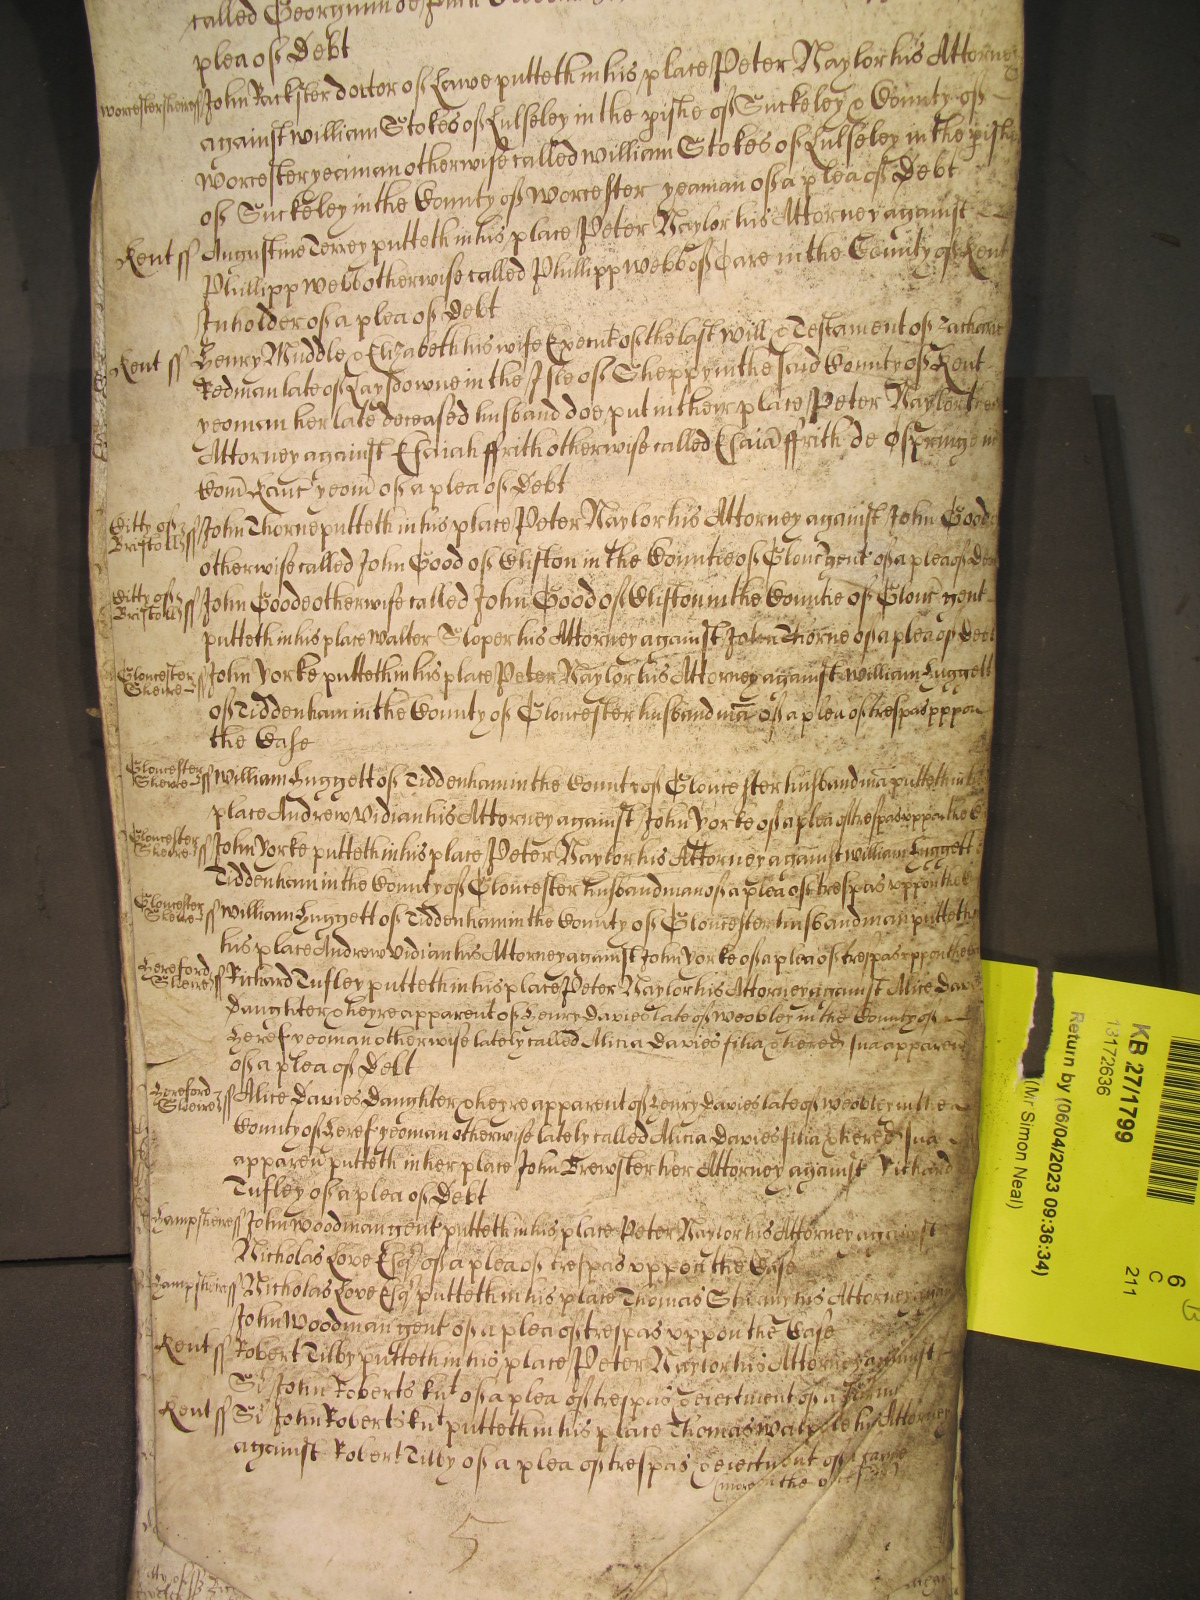 called Georgium de
plea of Debt
Worcestersheire ss John Rackster doctor of Lawe putteth in his place Peter Naylor his Attorney
against William Stokes of Lulseley in the pishe of Suckeley & County of
Worcester yeoman otherwise called William Stokes of Lulseley in the pishe
of Suckeley in the County of Worcester yeaman of a plea of Debt
Kent ss Augustine Terrey putteth in his place Peter Naylor his Attorney against
Phillipp Webb otherwise called Phillipp Webb of Oare in the County of Kent
Inholder of a plea of Debt
Kent ss Henry Muddle & Elizabeth his wife Execut of the last will & Testament of Zacharie
Redman late of Laysdowne in the Isle of Sheppy in the said County of Kent
yeoman her late deceased husband doe put in theyr place Peter Naylor
Attorney against Esaiah ffrith otherwise called Esaia ffrith de Ospringe in
Com Kanc yeom of a plea of Debt
Citty of Bristoll ss John Thorne putteth in his place Peter Naylor his Attorney against John Good
otherwise called John Good of Clifton in the Countie of Glouc gent of a plea of Debt
Citty of Bristoll ss John Goode otherwise called John Good of Clifton in the Countie of Glouc gent
putteth in his place Walter Sloper his Attorney against John Thorne of a plea of Debt
Gloucester Sheire ss John Yorke putteth in his place Peter Naylor his Attorney against William Luggett
of Tiddenham in the County of Gloucester husbandma of a plea of trespas uppon
the Case
Gloucester Sheire ss William Luggett of Tiddenham in the County of Gloucester husbandma putteth in his
place Andrew Vidian his Attorney against John Yorke of a plea of trespas uppon the C
Gloucester Sheire ss John Yorke putteth in his place Peter Naylor his Attorney against William Luggett
Tiddenham in the County of Gloucester husbandman of a plea of trespas uppon the
Gloucester Sheire ss William Luggett of Tiddenham in the County of Gloucester husbandman putteth
his place Andrew Vidian his Attorney against John Yorke of a plea of trespas uppon the
Hereford Sheire ss Richard Tufley putteth in his place Peter Naylor his Attorney against Alice Davi
Daughter & heyre apparent of Henry Davies late of Weobley in the County of
Heref yeoman otherwise lately called Alicia Davies filia & hered sua apparen
of a plea of Debt
Hereford Sheire ss Alice Davies Daughter & heyre apparent of Henry Davies late of Weobley in the
County of Heref yeoman otherwise lately called Alicia Davies filia & hered sua
apparen putteth in her place John Brewster her Attorney against Richard
Tufley of a plea of Debt
Hampsheire ss John Woodman gent putteth in his place Peter Naylor his Attorney against
Nicholas Love Esq of a plea of trespas uppon the Case
Hampsheire ss Nicholas Love Esq putteth in his place Thomas his Attorney
John Woodman gent of a plea of trespas uppon the Case
Kent ss Robert Tilby putteth in his place Peter Naylor his Attorney against
Sr John Roberts knt of a plea of trespas & eiectment of a farme
Kent ss Sr John Roberts knt putteth in his place Thomas Walpole his Attorney
against Robert Tilby of a plea of trespas & eiectment of a farme
5
KB 27/1799
13172636
Return by (06/04/2023 09:36:34)
(Mr Simon Neal)
6
C
211